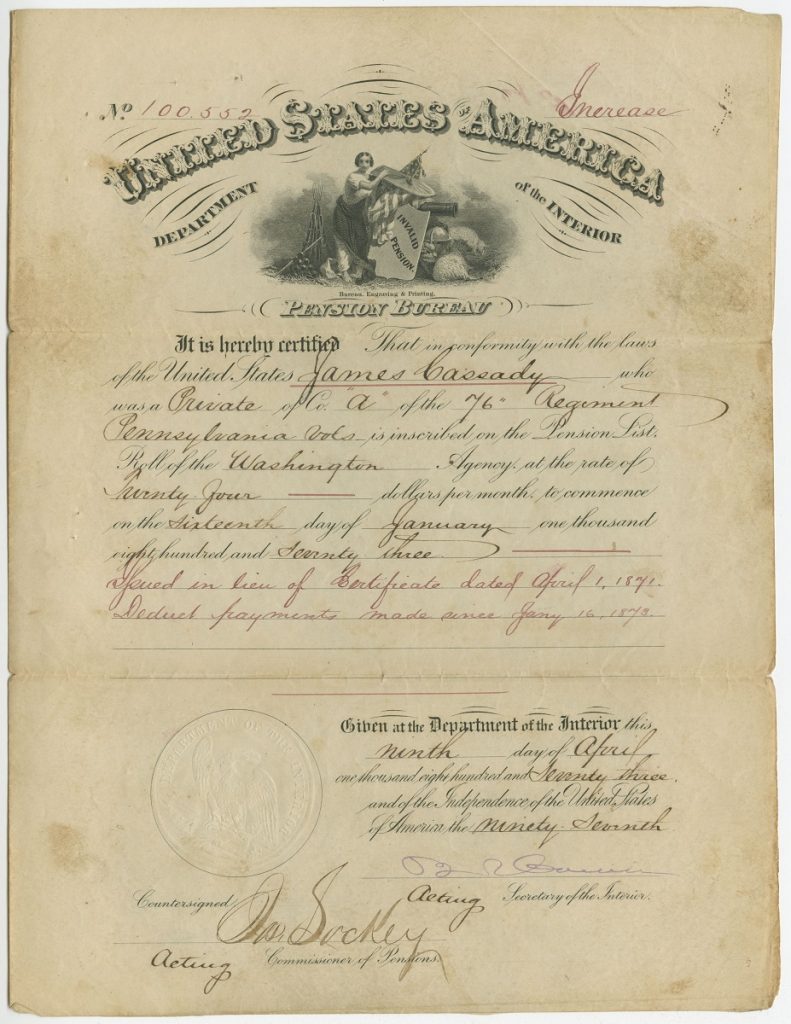 No 100.552
Increase
UNITED STATES OF AMERICA
DEPARTMENT of the INTERIOR
INVALID
PENSION.
Bureau, Engraving & Printing.
PENSION BUREAU
It is hereby certified That in conformity with the laws
of the United States James Cassady who
was a Private of Co. "A" of the 76" Regiment
Pennsylvania Vols is inscribed on the Pension List,
Roll of the Washington Agency, at the rate of
Twenty Four dollars per month, to commence
on the Sixteenth day of January one thousand
eight hundred and Seventy three
Issued in lieu of Certificate dated April 1, 1871.
Deduct payments made since Jany 16, 1873.
Given at the Department of the Interior this
ninth day of April
one thousand eight hundred and Seventy three.
and of the Independence of the United States
of America, the ninety-Seventh
DEPARTMENT OF THE
Acting Secretary of the Interior.
Countersigned
Jos Lockey
Acting Commissioner of Pensions.